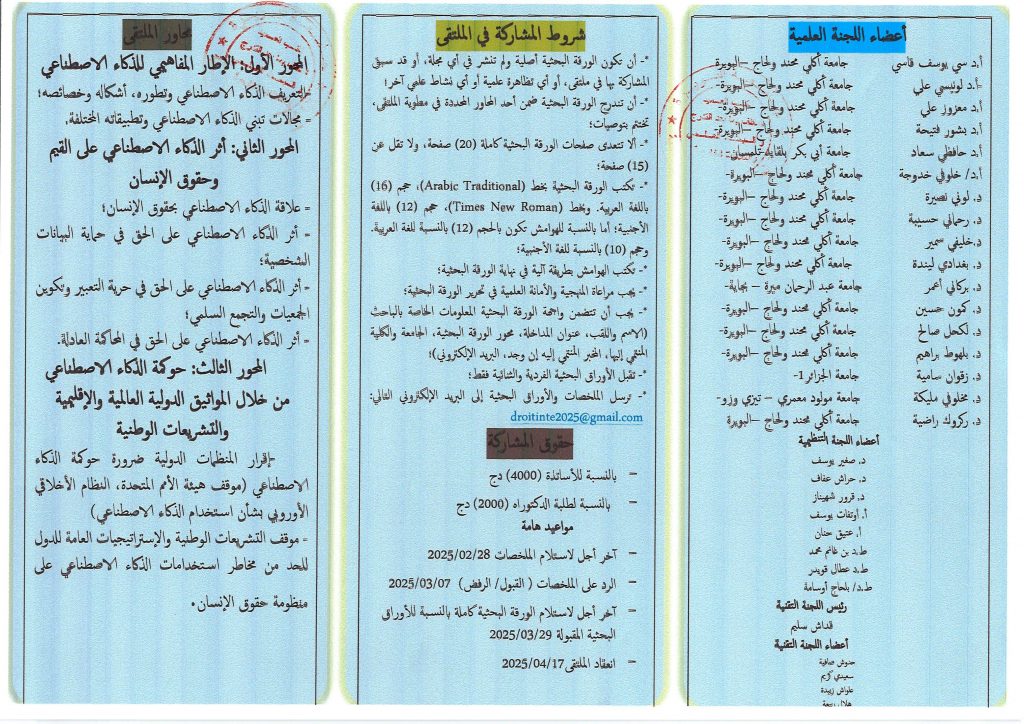 أعضاء اللجنة العلمية
أ.د سي يوسف قاسي جامعة أكلي محند ولحاج –البويرة
أ.د لونيسي علي جامعة أكلي محند ولحاج –البويرة-
أ.د معزوز علي جامعة أكلي محند ولحاج –البويرة-
أ.د بشور فتيحة جامعة أكلي محند ولحاج –البويرة-
أ.د حافظي سعاد جامعة أبي بكر بلقايد-تلمسان-
أ.د/ خلوفي خدوجة جامعة أكلي محند ولحاج –البويرة-
د. لوني نصيرة جامعة أكلي محند ولحاج –البويرة-
د. رحماني حسيبة جامعة أكلي محند ولحاج –البويرة-
د.خليفي سمير جامعة أكلي محند ولحاج –البويرة-
د. بغدادي ليندة جامعة أكلي محند ولحاج –البويرة-
د. بركاني أعمر جامعة عبد الرحمان ميرة – بجاية-
د. كمون حسين جامعة أكلي محند ولحاج –البويرة-
د. لكحل صالح جامعة أكلي محند ولحاج –البويرة-
د. يلهوط براهيم جامعة أكلي محند ولحاج –البويرة-
د. زقوان سامية جامعة الجزائر 1-
د. مخلوفي مليكة جامعة مولود معمري – تيزي وزو-
د. ركروك راضية جامعة أكلي محند ولحاج –البويرة
أعضاء اللجنة التنظيمية
د. صغير يوسف
د. حراش عفاف
د. قرور شهيناز
أ. أوتفات يوسف
أ. عتيق حنان
ط.د بن غانم محمد
ط.د عطال قويدر
ط.د/ بلحاج أوسامة
رئيس اللجنة التقنية
قداش سليم
أعضاء اللجنة التقنية
حدوش صافية
سعيدي كريم
علواش زبيدة
هلال ربيعة
شروط المشاركة في الملتقى
*- أن تكون الورقة البحثية أصلية ولم تنشر في أي مجلة، أو قد سبق
المشاركة بها في ملتقى، أو أي تظاهرة علمية أو أي نشاط علمي آخر؛
*- أن تندرج الورقة البحثية ضمن أحد المحاور المحددة في مطوية الملتقى،
تختتم بتوصيات؛
*- ألا تتعدى صفحات الورقة البحثية كاملة (20) صفحة، ولا تقل عن
(15) صفحة؛
*- تكتب الورقة البحثية بخط (Arabic Traditional)، حجم (16)
باللغة العربية. وبخط (Times New Roman)، حجم (12) باللغة
الأجنبية؛ أما بالنسبة للهوامش تكون بالحجم (12) بالنسبة للغة العربية.
وحجم (10) بالنسبة للغة الأجنبية؛
*- تكتب الهوامش بطريقة آلية في نهاية الورقة البحثية؛
*- يجب مراعاة المنهجية والأمانة العلمية في تحرير الورقة البحثية؛
*- يجب أن تتضمن واجهة الورقة البحثية المعلومات الخاصة بالباحث
(الاسم واللقب، عنوان المداخلة، محور الورقة البحثية، الجامعة والكلية
المنتمي إليها، المخبر المنتمي إليه إن وجد، البريد الإلكتروني)؛
*- تقبل الأوراق البحثية الفردية والثنائية فقط؛
*- ترسل الملخصات والأوراق البحثية إلى البريد الإلكتروني التالي:
droitinte2025@gmail.com
حقوق المشاركة
– بالنسبة للأساتذة (4000) دج
– بالنسبة لطلبة الدكتوراه (2000) دج
مواعيد هامة
– آخر أجل لاستلام الملخصات 2025/02/28
– الرد على الملخصات ( القبول/ الرفض) 2025/03/07
– آخر أجل لاستلام الورقة البحثية كاملة بالنسبة للأوراق
البحثية المقبولة 2025/03/29
– انعقاد الملتقى 2025/04/17
محاور الملتقى
المحور الأول: الإطار المفاهيمي للذكاء الاصطناعي
- التعريف الذكاء الاصطناعي وتطوره، أشكاله وخصائصه؛
- مجالات تبني الذكاء الاصطناعي وتطبيقاته المختلفة.
المحور الثاني: أثر الذكاء الاصطناعي على القيم
وحقوق الإنسان
- علاقة الذكاء الاصطناعي بحقوق الإنسان؛
- أثر الذكاء الاصطناعي على الحق في حماية البيانات
الشخصية؛
- أثر الذكاء الاصطناعي على الحق في حرية التعبير وتكوين
الجمعيات والتجمع السلمي؛
- أثر الذكاء الاصطناعي على الحق في المحاكمة العادلة.
المحور الثالث: حوكمة الذكاء الاصطناعي
من خلال المواثيق الدولية العالمية والإقليمية
والتشريعات الوطنية
-إقرار المنظمات الدولية ضرورة حوكمة الذكاء
الاصطناعي (موقف هيئة الأمم المتحدة، النظام الأخلاقي
الأوروبي بشأن استخدام الذكاء الاصطناعي)
- موقف التشريعات الوطنية والإستراتيجيات العامة للدول
للحد من مخاطر استخدامات الذكاء الاصطناعي على
منظومة حقوق الإنسان.